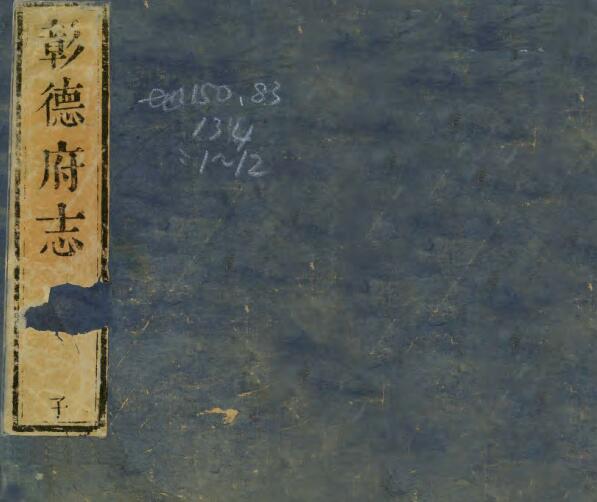 彰德府志
子
150.83
134
1~12